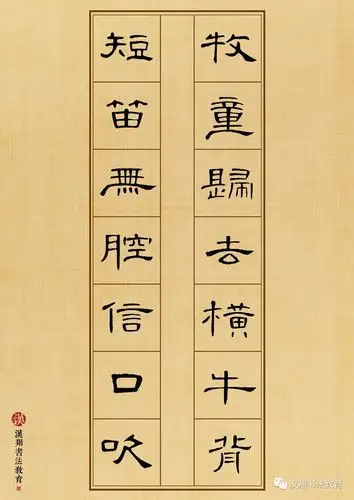 牧童歸去橫牛背
短笛無腔信口吹
漢翔書法教育
汉翔书法教育